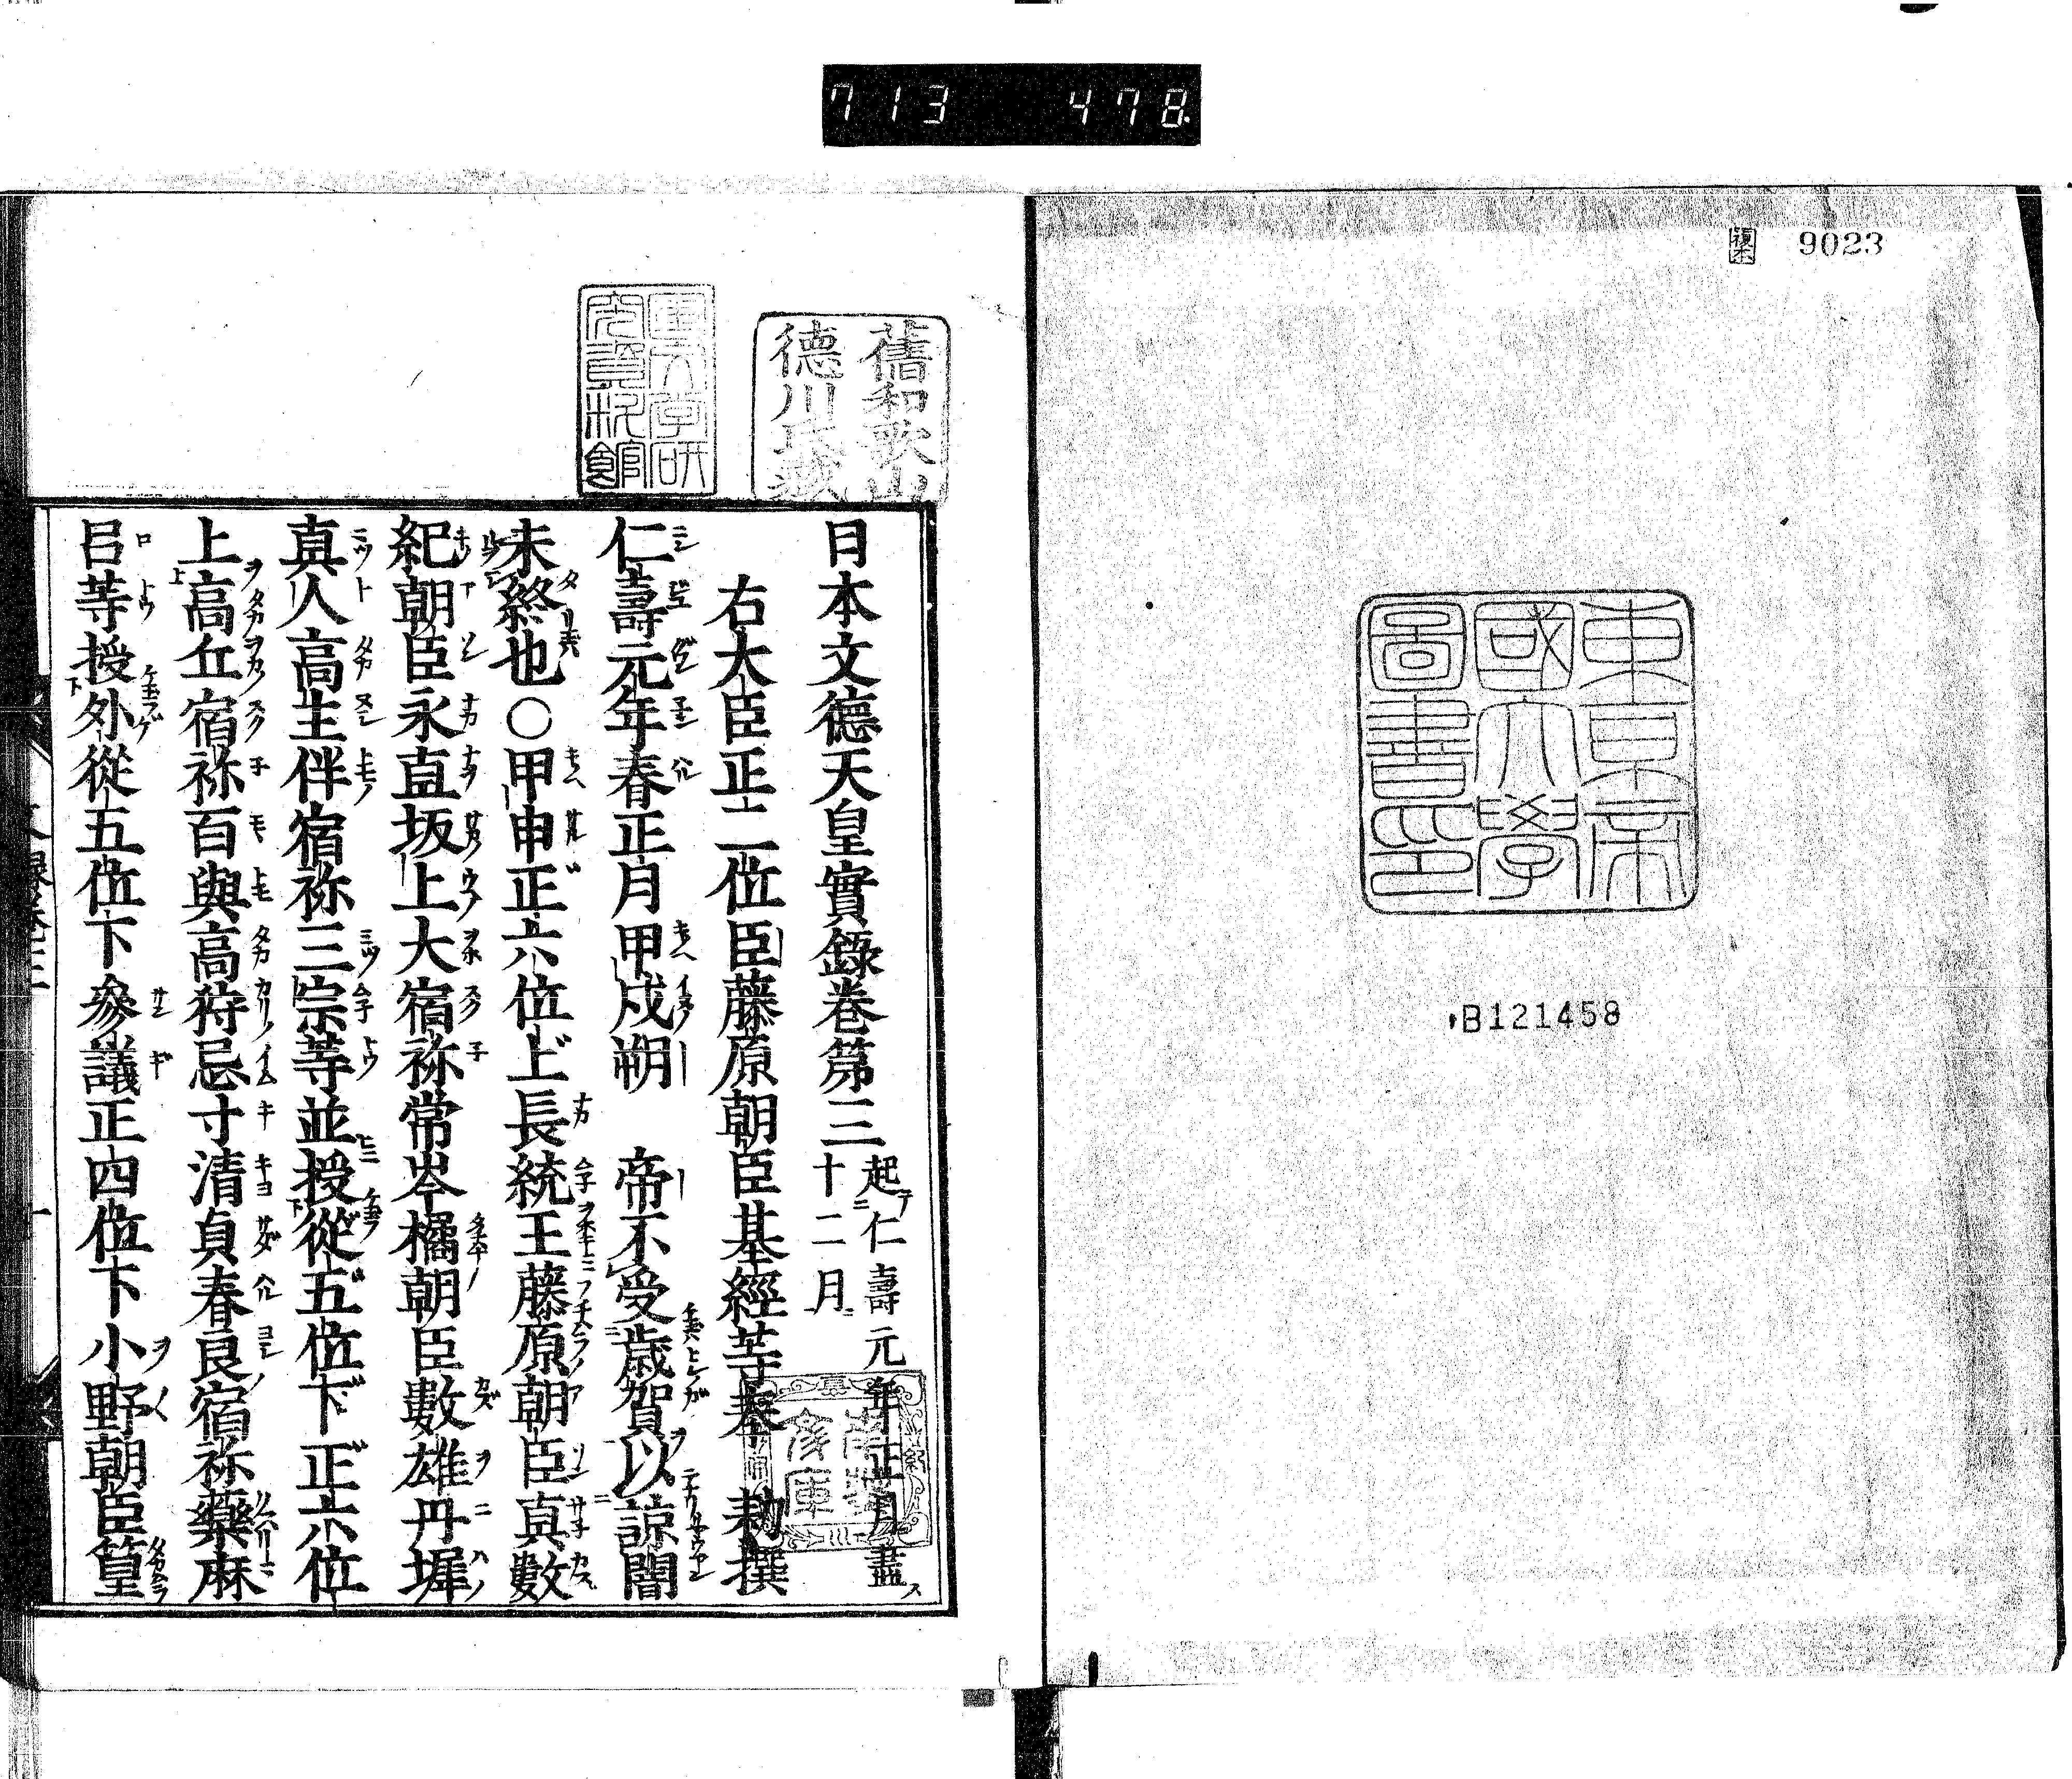 713 478
9023
東京帝
國大學
圖書印
B121458
舊和歌山
德川氏藏
國文学研
究資料館
日本文德天皇實錄卷第三
起仁壽元年正月盡
十二月
右大臣正二位臣藤原朝臣基經等奉 勅撰
仁壽元年春正月甲戌朔 帝不受歲賀以諒闇
未終也〇甲申正六位上長統王藤原朝臣真數
紀朝臣永直坂上大宿祢常岑橘朝臣數雄丹墀
真人高生伴宿祢三宗等並授從五位下正六位
上高丘宿祢百與高狩忌寸清貞春良宿祢藥麻
呂等授外從五位下參議正四位下小野朝臣篁